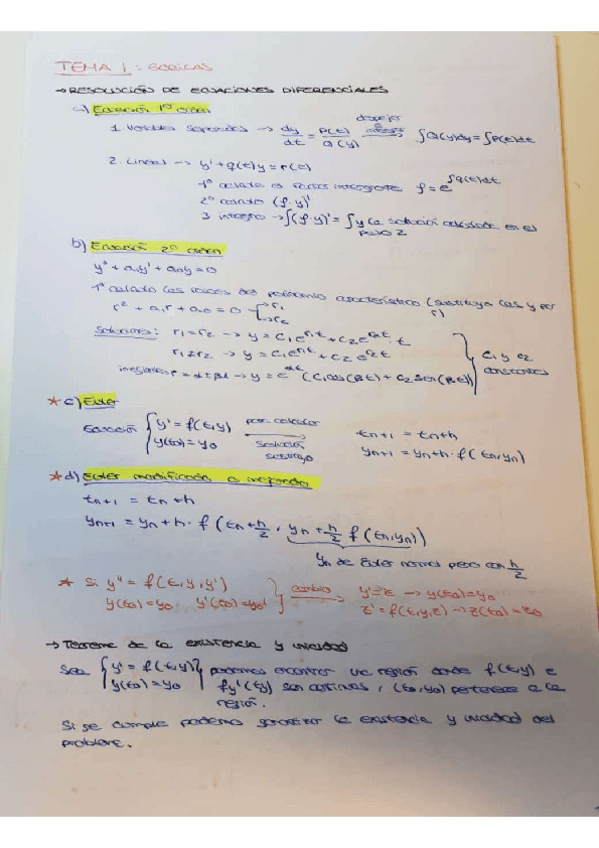 TEMA 1: EDOICAS
→ RESOLUCIÓN DE ECUACIONES DIFERENCIALES
a) Ecuación 1º orden
1. Variables separadas → dy/dt = P(t)/Q(y) despejar e integrar ∫Q(y)dy = ∫P(t)dt
2. Lineal → y' + q(t)y = p(t)
1º calculo el factor integrante f = e^∫q(t)dt
2º calculo (f·y)'
3 integro → ∫(f·y)' = ∫y la solución calculada en el paso 2
b) Ecuación 2º orden
y'' + a₁y' + a₀y = 0
1º calculo las raíces del polinomio característico (sustituyo las y por r)
r² + a₁r + a₀ = 0 r₁ r₂
Soluciones: r₁ = r₂ → y = C₁e^r₁t + C₂e^r₂t · t
r₁ ≠ r₂ → y = C₁e^r₁t + C₂e^r₂t
r = α ± βi → y = e^αt (C₁cos(βt) + C₂sen(βt))
C₁ y C₂ constantes
* c) Euler
Ecuación { y' = f(t,y) y(t₀) = y₀ para calcular solución
tn+1 = tn + h
yn+1 = yn + h · f(tn,yn)
* d) Euler modificado o mejorado
tn+1 = tn + h
yn+1 = yn + h · f(tn + h/2, yn + h/2 f(tn,yn))
yn de Euler normal pero con h/2
* Si y'' = f(t,y,y') y(t₀) = y₀ y'(t₀) = y₀' } cambio y' = z → y(t₀) = y₀
z' = f(t,y,z) → z(t₀) = z₀
→ Teorema de la existencia y unicidad
Sea { y' = f(t,y) y(t₀) = y₀ } podemos encontrar una región donde f(t,y) e
fy'(t,y) son continuas, (t₀,y₀) pertenece a la
región.
Si se cumple podemos garantizar la existencia y unicidad del
problema.